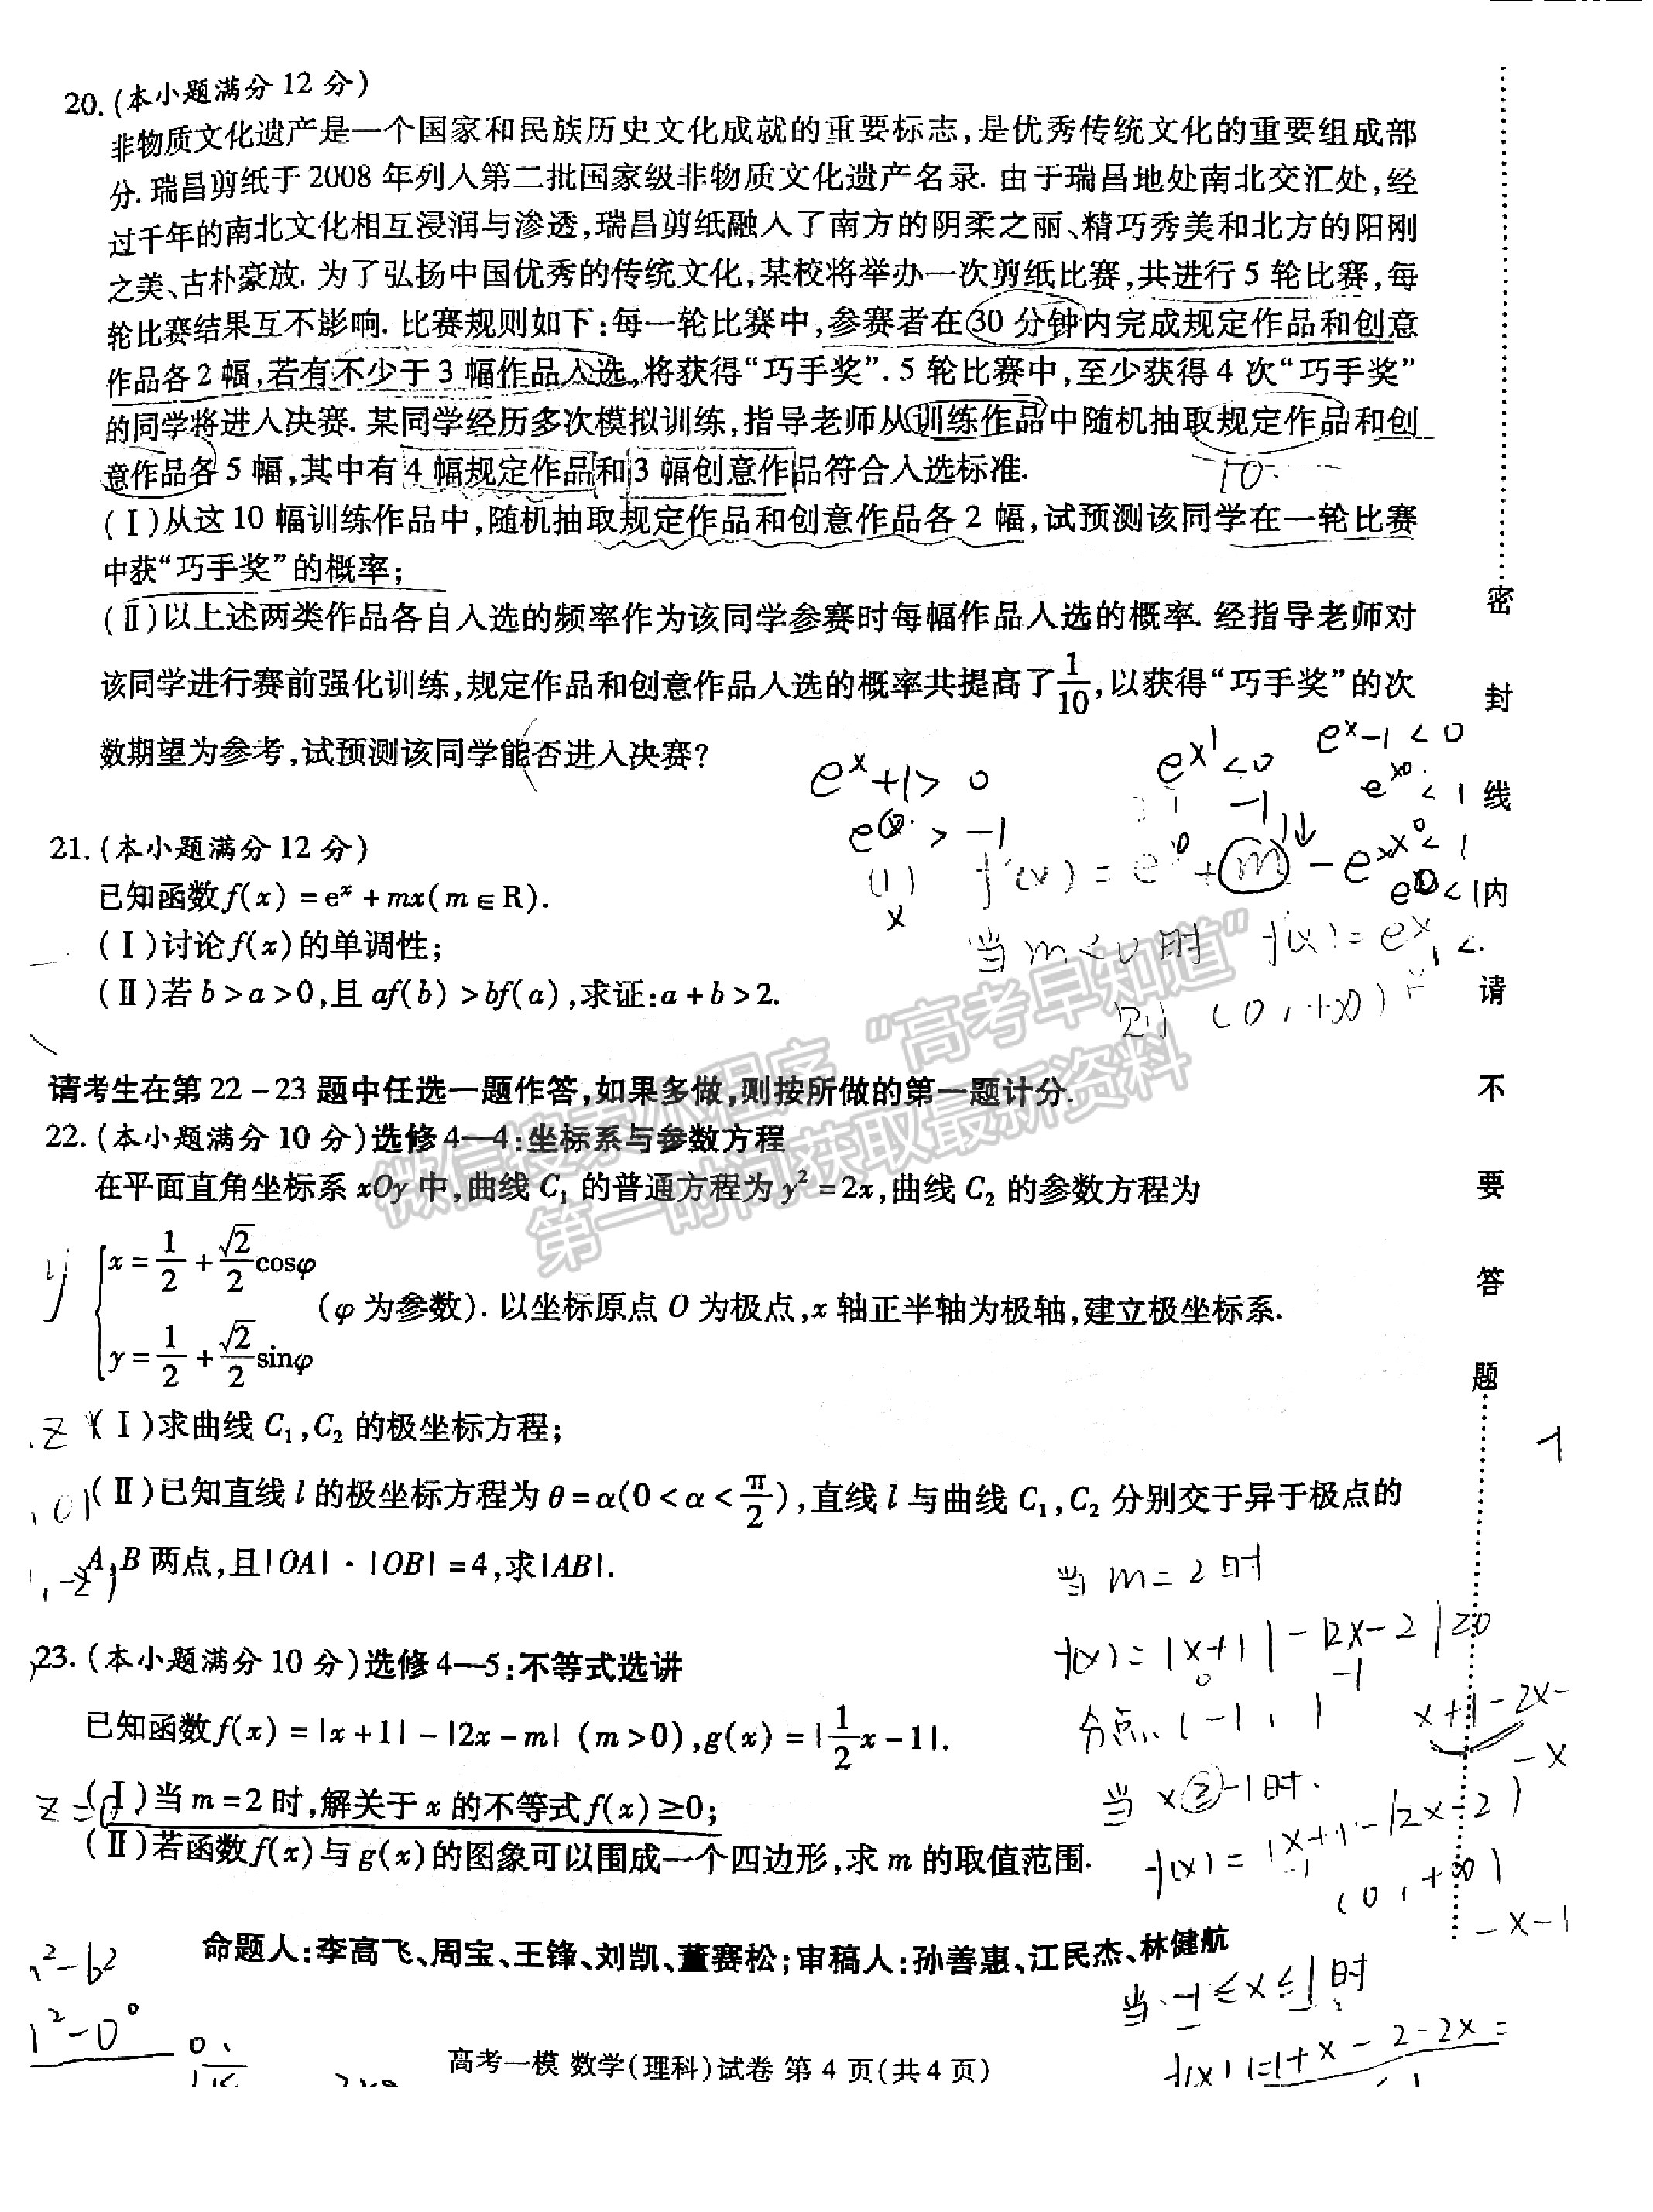 20. (本小题满分 12 分)
非物质文化遗产是一个国家和民族历史文化成就的重要标志,是优秀传统文化的重要组成部
分. 瑞昌剪纸于 2008 年列入第二批国家级非物质文化遗产名录. 由于瑞昌地处南北交汇处,经
过千年的南北文化相互浸润与渗透,瑞昌剪纸融入了南方的阴柔之丽、精巧秀美和北方的阳刚
之美、古朴豪放. 为了弘扬中国优秀的传统文化,某校将举办一次剪纸比赛,共进行 5 轮比赛,每
轮比赛结果互不影响. 比赛规则如下:每一轮比赛中,参赛者在 30 分钟内完成规定作品和创意
作品各 2 幅,若有不少于 3 幅作品入选,将获得“巧手奖”. 5 轮比赛中,至少获得 4 次“巧手奖”
的同学将进入决赛. 某同学经历多次模拟训练,指导老师从训练作品中随机抽取规定作品和创
意作品各 5 幅,其中有 4 幅规定作品和 3 幅创意作品符合入选标准.
10
(Ⅰ)从这 10 幅训练作品中,随机抽取规定作品和创意作品各 2 幅,试预测该同学在一轮比赛
中获“巧手奖”的概率;
(Ⅱ)以上述两类作品各自入选的频率作为该同学参赛时每幅作品入选的概率. 经指导老师对
该同学进行赛前强化训练,规定作品和创意作品入选的概率共提高了 1/10 ,以获得“巧手奖”的次
数期望为参考,试预测该同学能否进入决赛?
e^x+1>0
e^x-1<0
21. (本小题满分 12 分)
已知函数 f(x) = e^x + mx(m∈R).
(Ⅰ)讨论 f(x) 的单调性;
(Ⅱ)若 b > a > 0,且 af(b) > bf(a),求证:a + b > 2.
当 m<0 时 f(x)=e^x
则 (0,+∞)
微信搜索小程序“高考早知道”
第一时间获取最新资料
请考生在第 22 - 23 题中任选一题作答,如果多做,则按所做的第一题计分.
22. (本小题满分 10 分)选修 4—4:坐标系与参数方程
在平面直角坐标系 xOy 中,曲线 C₁ 的普通方程为 y² = 2x,曲线 C₂ 的参数方程为
{ x = 1/2 + √2/2 cosφ
y = 1/2 + √2/2 sinφ
(φ 为参数). 以坐标原点 O 为极点,x 轴正半轴为极轴,建立极坐标系.
(Ⅰ)求曲线 C₁,C₂ 的极坐标方程;
(Ⅱ)已知直线 l 的极坐标方程为 θ = α(0 < α < π/2),直线 l 与曲线 C₁,C₂ 分别交于异于极点的
A,B 两点,且|OA| · |OB| = 4,求|AB|.
当 m=2 时
f(x)=|x+1|-|2x-2|≥0
23. (本小题满分 10 分)选修 4—5:不等式选讲
已知函数 f(x) = |x + 1| - |2x - m| (m > 0),g(x) = |1/2 x - 1|.
(Ⅰ)当 m = 2 时,解关于 x 的不等式 f(x) ≥ 0;
(Ⅱ)若函数 f(x) 与 g(x) 的图象可以围成一个四边形,求 m 的取值范围.
(0,+∞)
-x-1
命题人:李高飞、周宝、王锋、刘凯、董赛松;审稿人:孙善惠、江民杰、林健航
当 -1≤x≤1 时
高考一模 数学(理科)试卷 第 4 页(共 4 页)
密 封 线 内 请 不 要 答 题